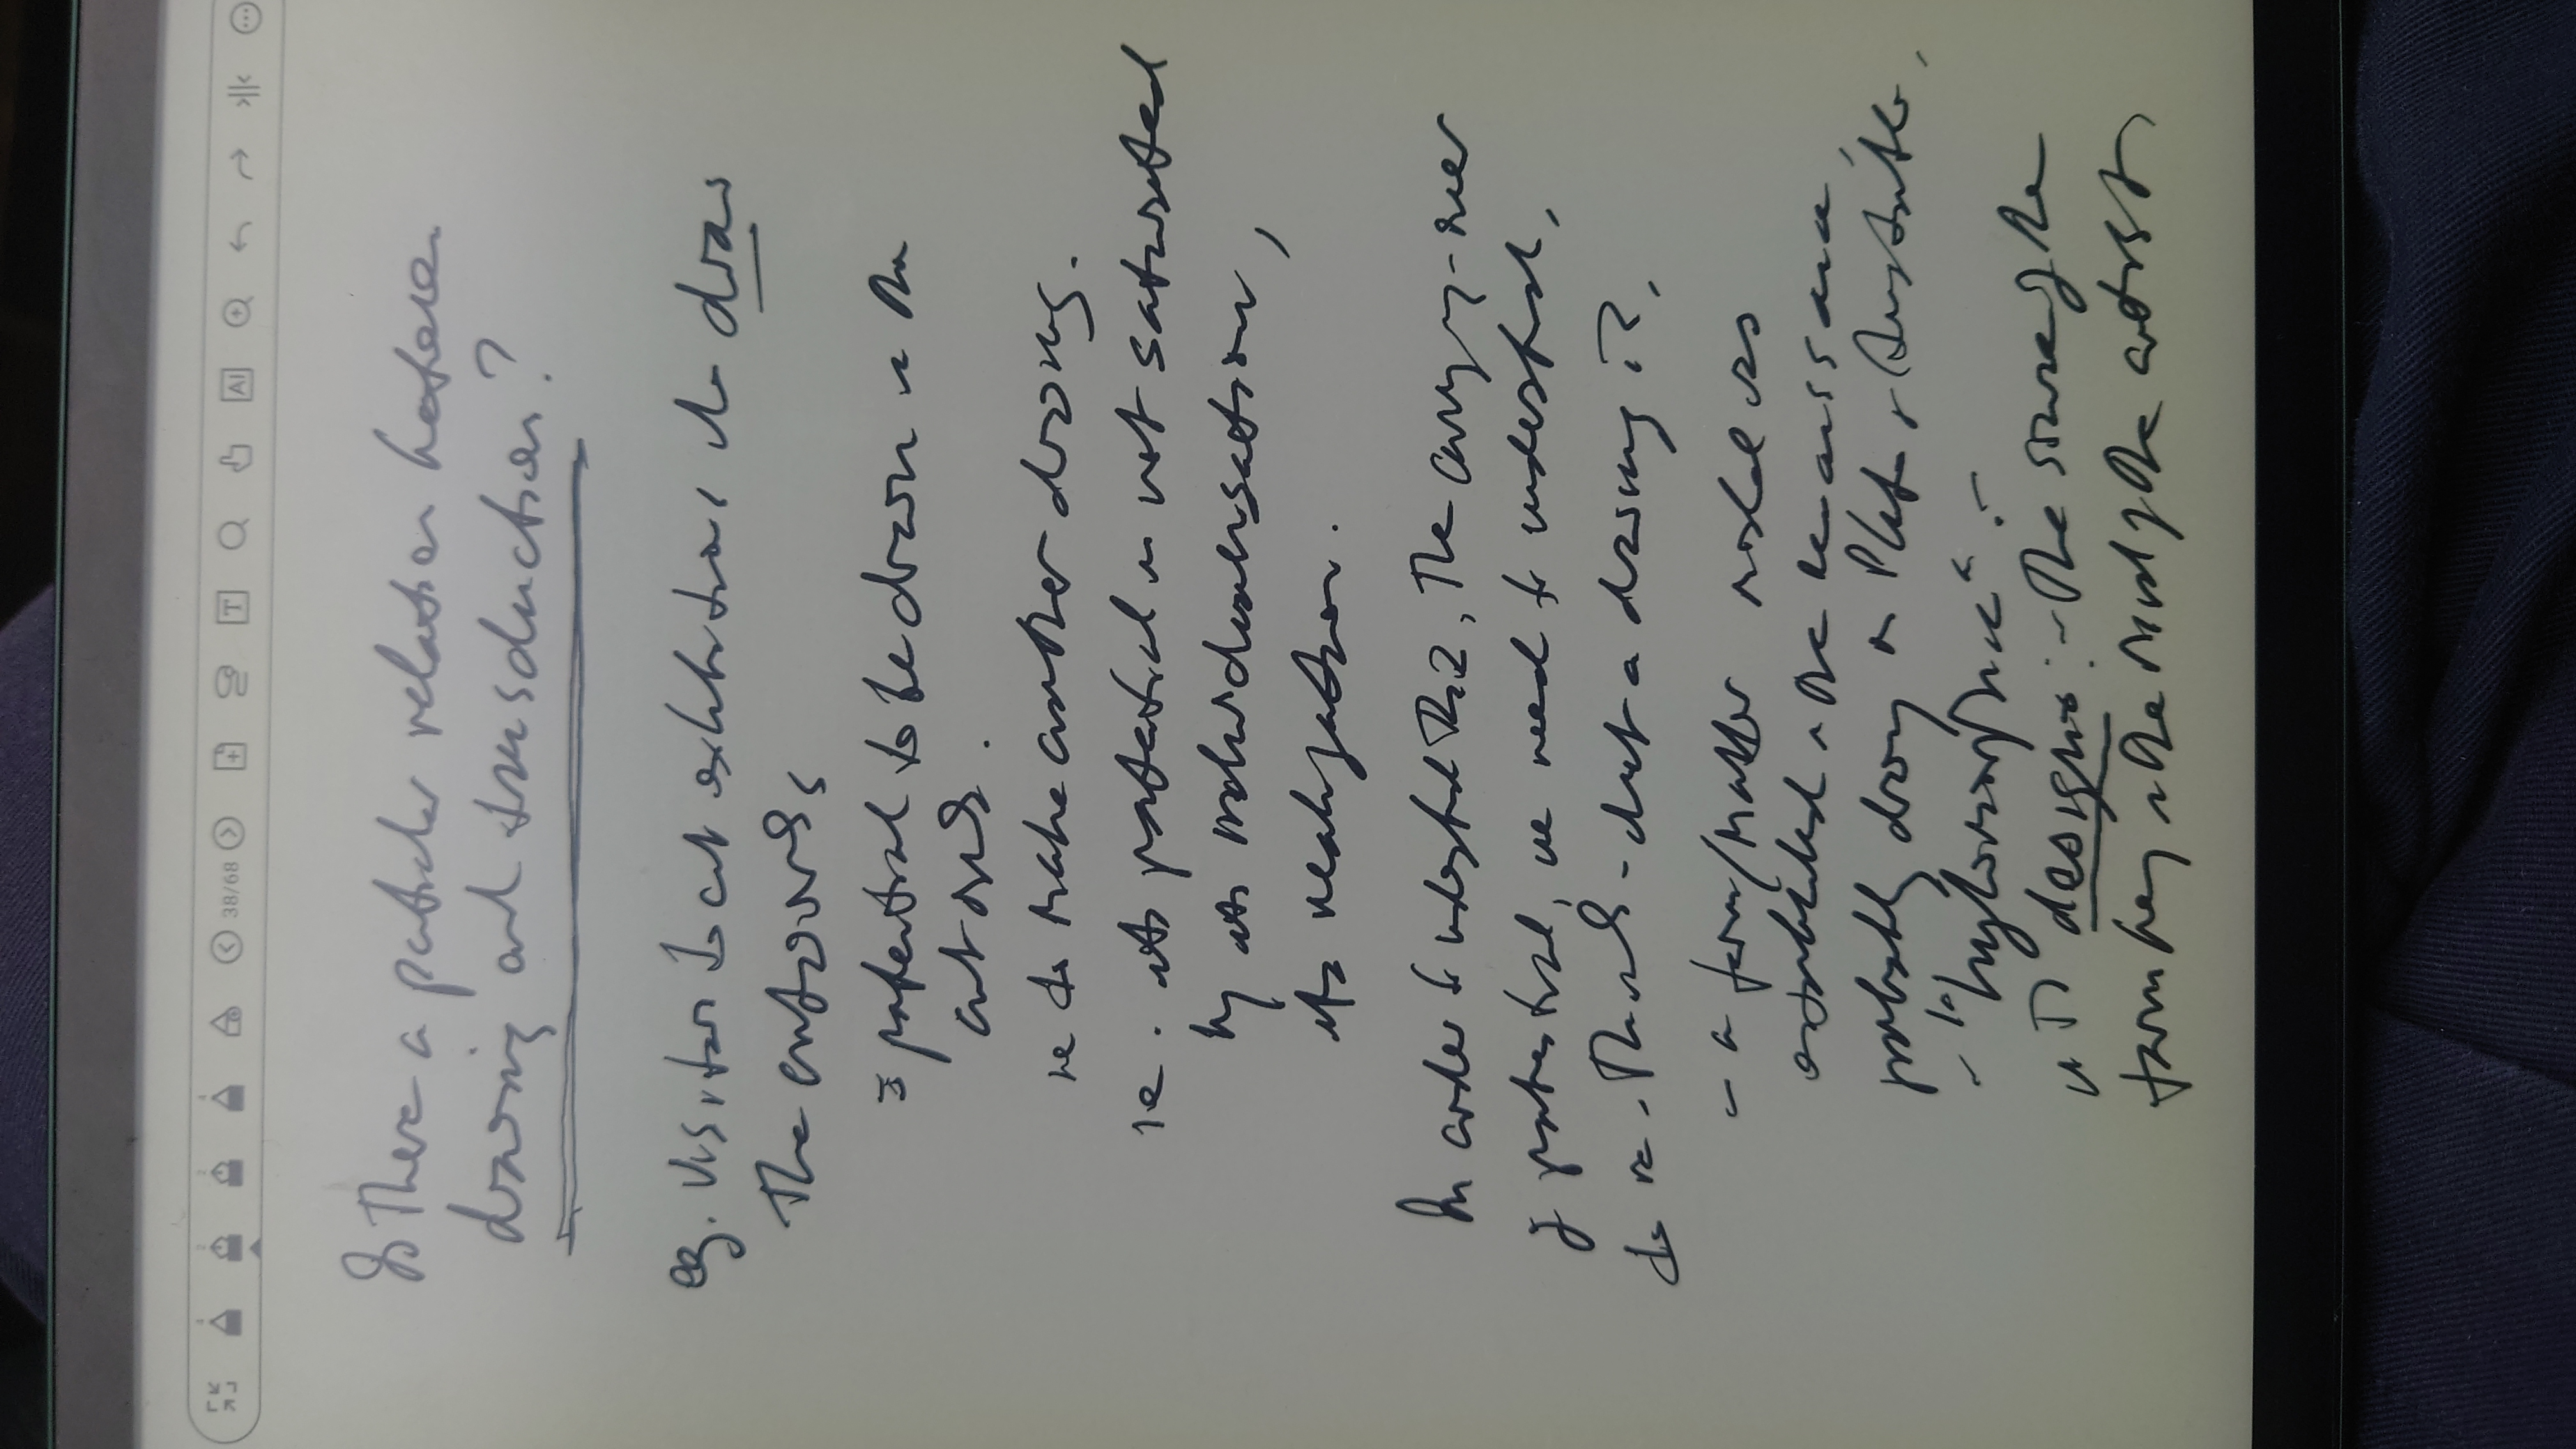 38/68
T
AI
Is there a particular relation between
drawing and transduction?
eg. visitors to art exhibitions who draw
the artworks
= potential to be drawn in the
artwork.
ie to make another drawing.
ie. its potential is not saturated
by its individualisation,
its realization.
In order to understand this, the carrying-over
of potential, we need to understand,
to re-think - what a drawing is,
- a form/matter model was
established in the Renaissance,
probably drawing on Plato & Aristotle,
- "hylomorphic" -
designo: - the source of the
form being in the mind of the artist,